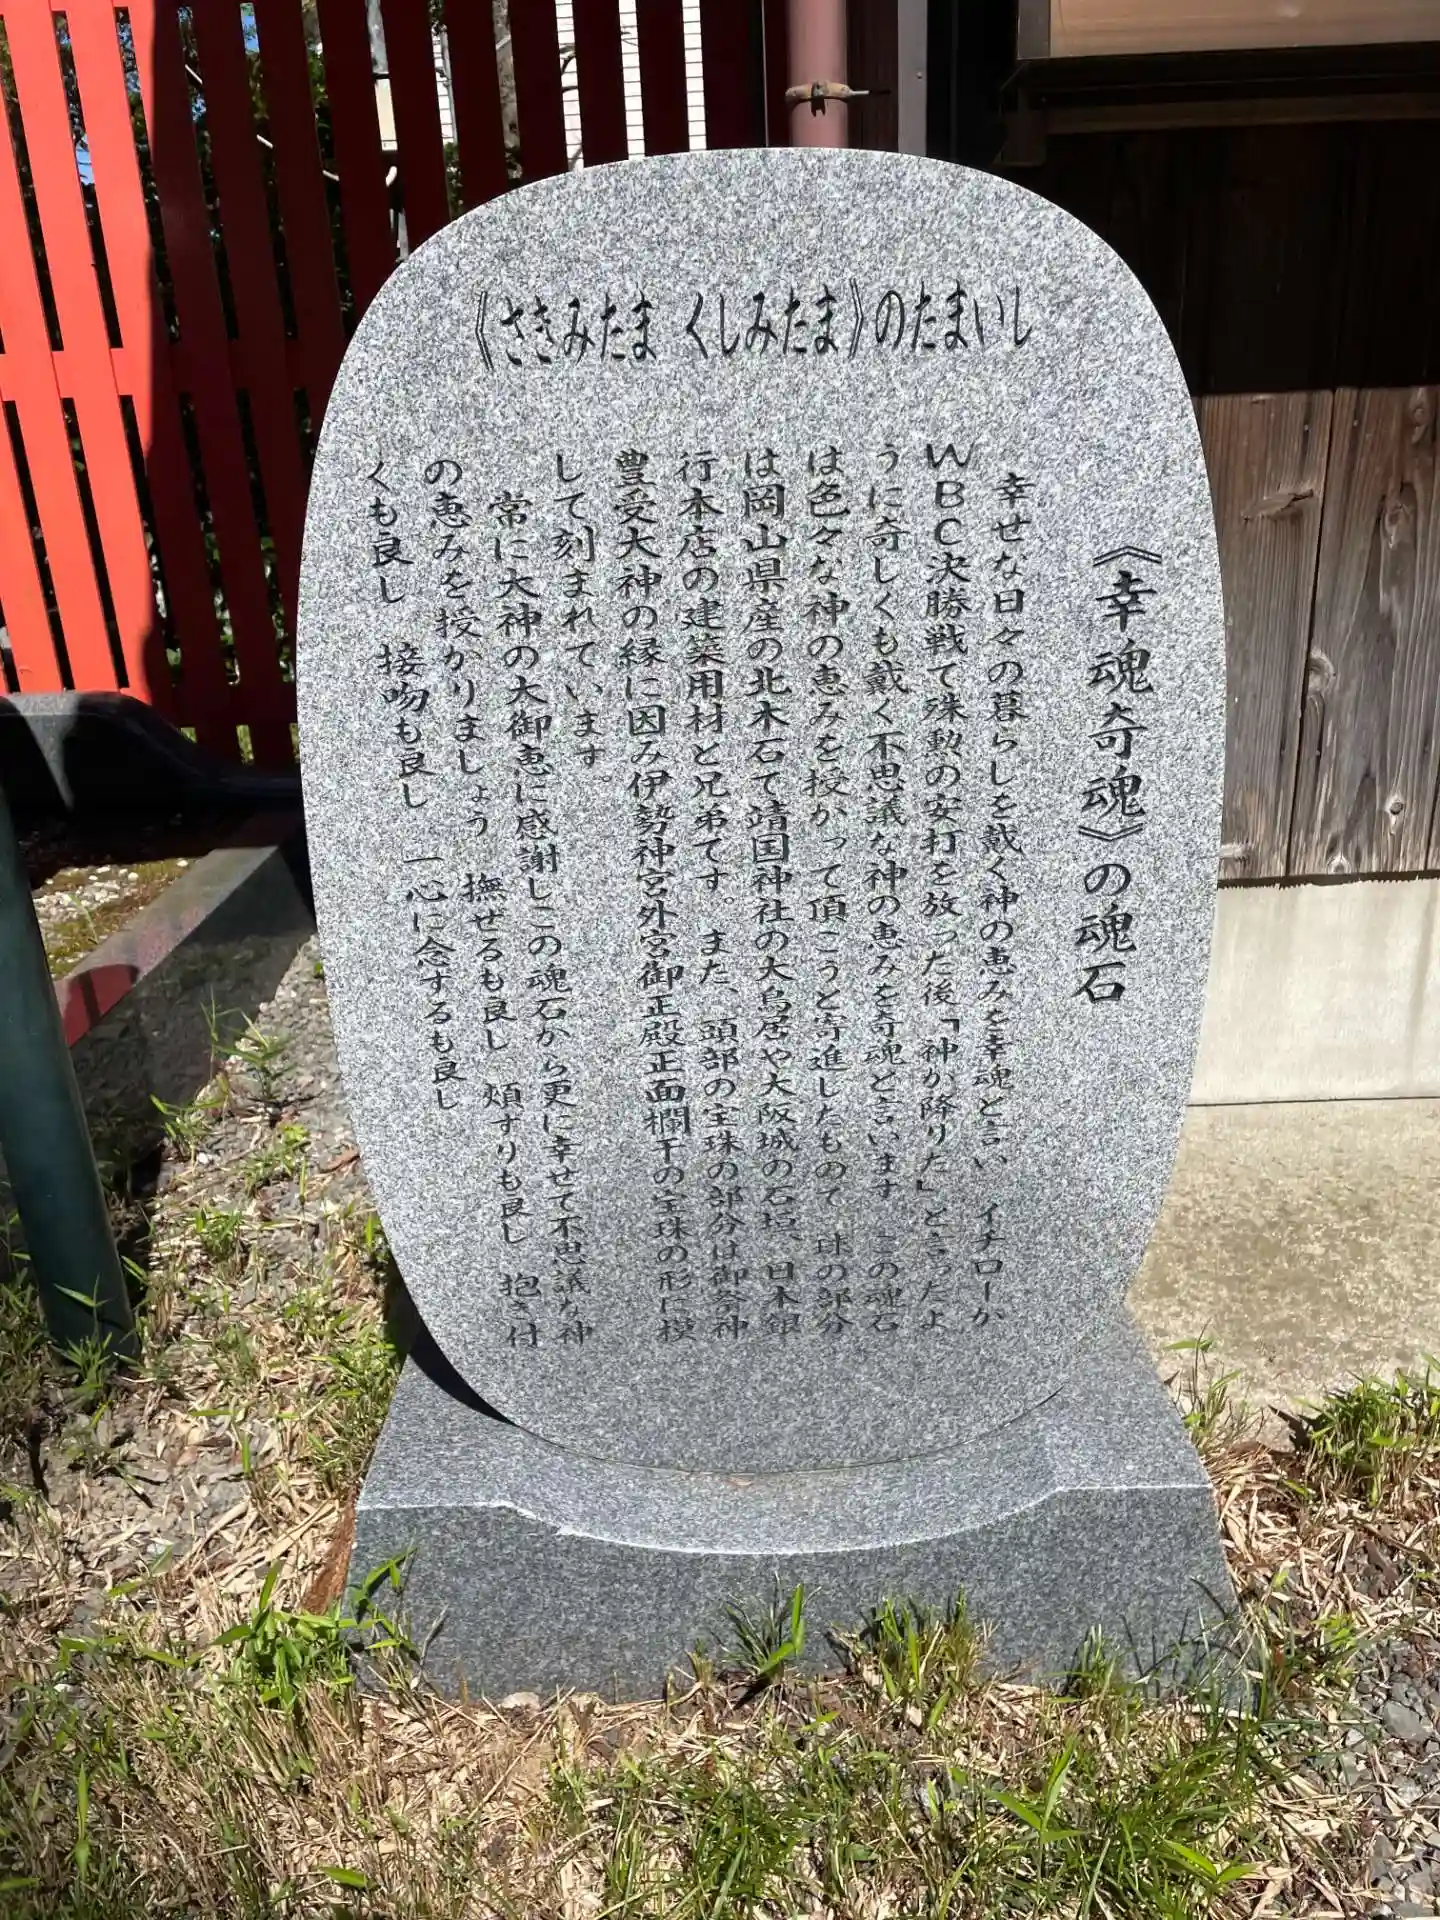 《さきみたま くしみたま》のたまいし
《幸魂奇魂》の魂石
幸せな日々の暮らしを戴く神の恵みを幸魂と言い イチローが
WBC決勝戦で殊勲の安打を放った後「神が降りた」と言ったよ
うに奇しくも戴く不思議な神の恵みを奇魂と言います。この魂石
は色々な神の恵みを授かって頂こうと寄進したもので 球の部分
は岡山県産の北木石で靖国神社の大鳥居や大阪城の石垣、日本銀
行本店の建築用材と兄弟です。また、頭部の宝珠の部分は御祭神
豊受大神の縁に因み伊勢神宮外宮御正殿正面欄干の宝珠の形に模
して刻まれています。
常に大神の大御恵に感謝しこの魂石から更に幸せで不思議な神
の恵みを授かりましょう 撫ぜるも良し 頬すりも良し 抱き付
くも良し 接吻も良し 一心に念ずるも良し